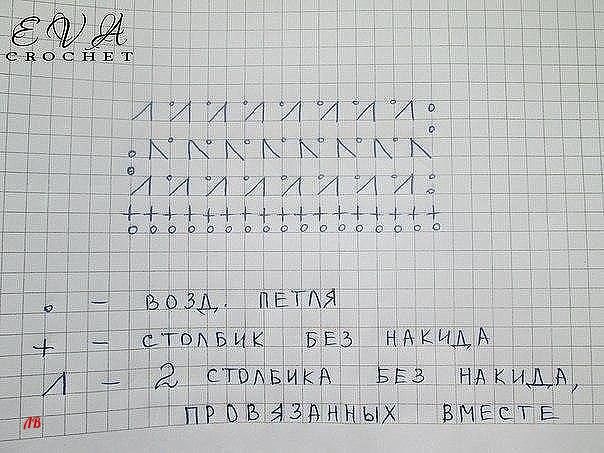 EVA
CROCHET
ВОЗД. ПЕТЛЯ
+ – СТОЛБИК БЕЗ НАКИДА
– 2 СТОЛБИКА БЕЗ НАКИДА,
ПРОВЯЗАННЫХ ВМЕСТЕ
ЛВ